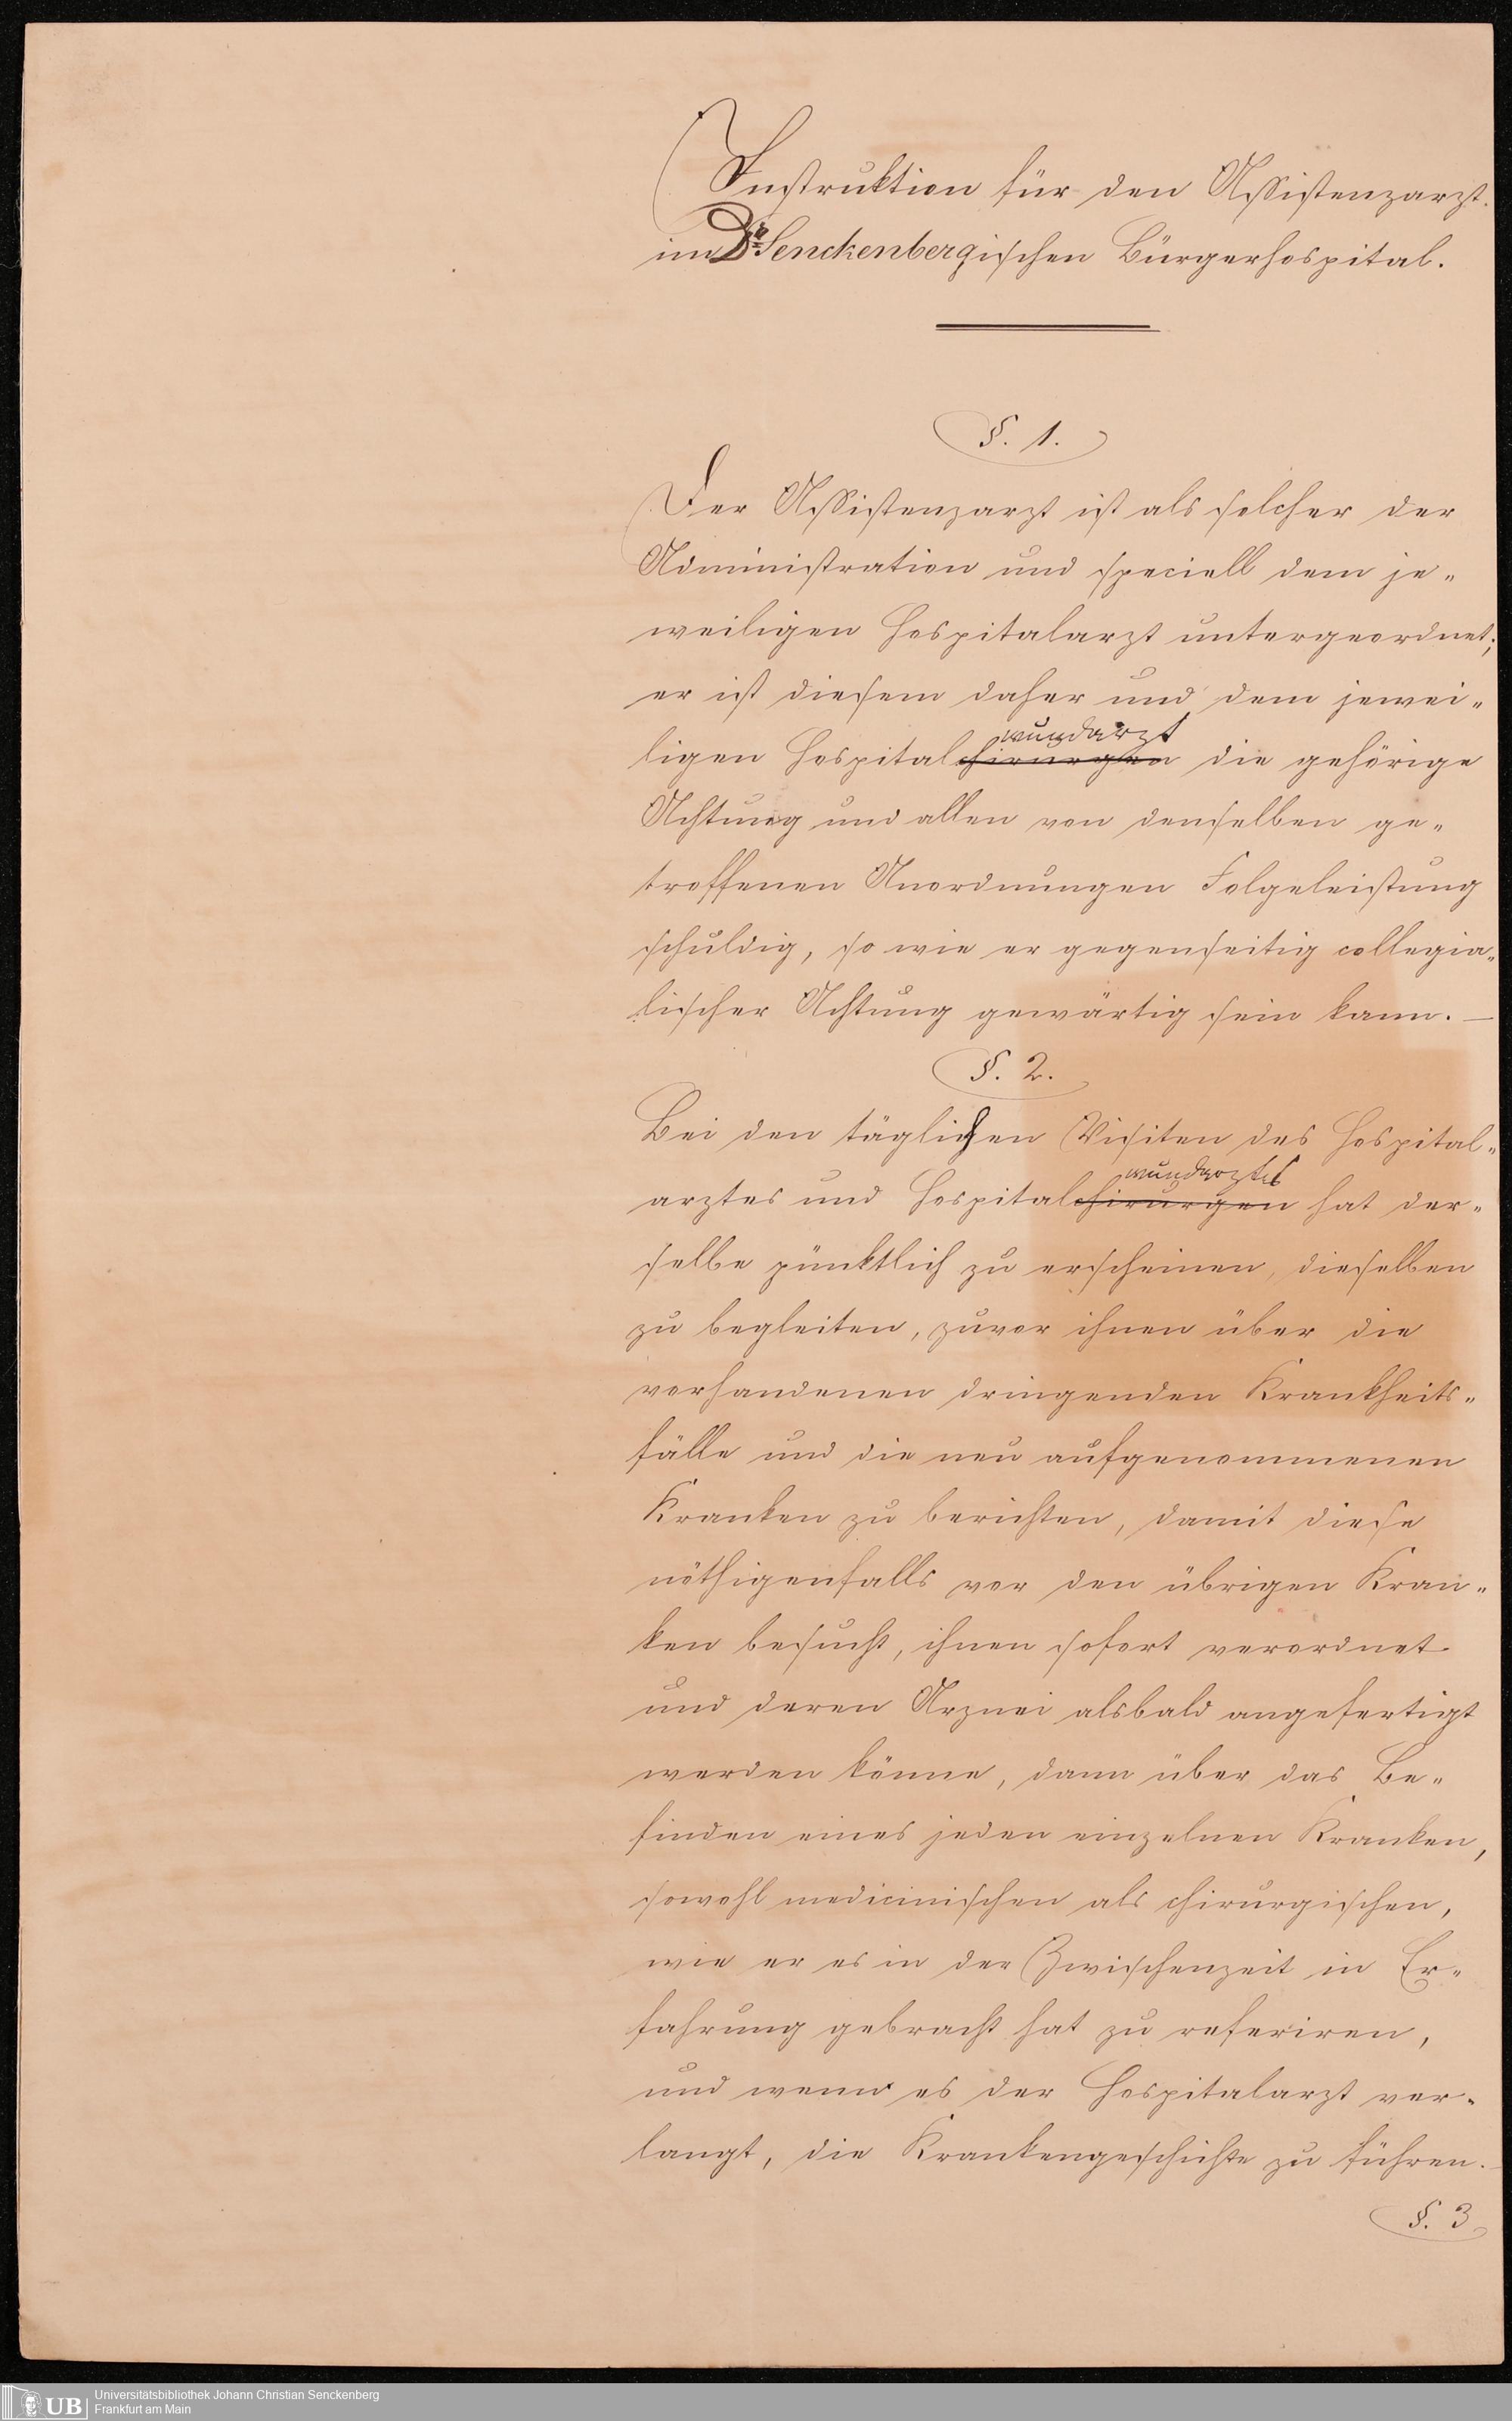 Instruktion für den Assistenzarzt.
im Dr Senckenbergischen Bürgerhospital.
§. 1.
Der Assistenzarzt ist als solcher der
Administration und speciell dem je-
weiligen Hospitalarzt untergeordnet;
er ist diesem daher und dem jewei-
wundarzt
ligen Hospitalchirurgen die gehörige
Achtung und allen von denselben ge-
troffenen Anordnungen Folgeleistung
schuldig, so wie er gegenseitig collegia-
lischer Achtung gewärtig sein kann. —
§. 2.
Bei den täglichen Visiten des Hospital-
wundarztes
arztes und Hospitalchirurgen hat der-
selbe pünktlich zu erscheinen, dieselben
zu begleiten, zuvor ihnen über die
vorhandenen dringenden Krankheits-
fälle und die neu aufgenommenen
Kranken zu berichten, damit diese
nöthigenfalls vor den übrigen Kran-
ken besucht, ihnen sofort verordnet
und deren Arznei alsbald angefertigt
werden könne, dann über das Be-
finden eines jeden einzelnen Kranken,
sowohl medicinischen als chirurgischen,
wie er es in der Zwischenzeit in Er-
fahrung gebracht hat zu referiren,
und wenn es der Hospitalarzt ver-
langt, die Krankengeschichte zu führen.
§. 3
UB
Universitätsbibliothek Johann Christian Senckenberg
Frankfurt am Main